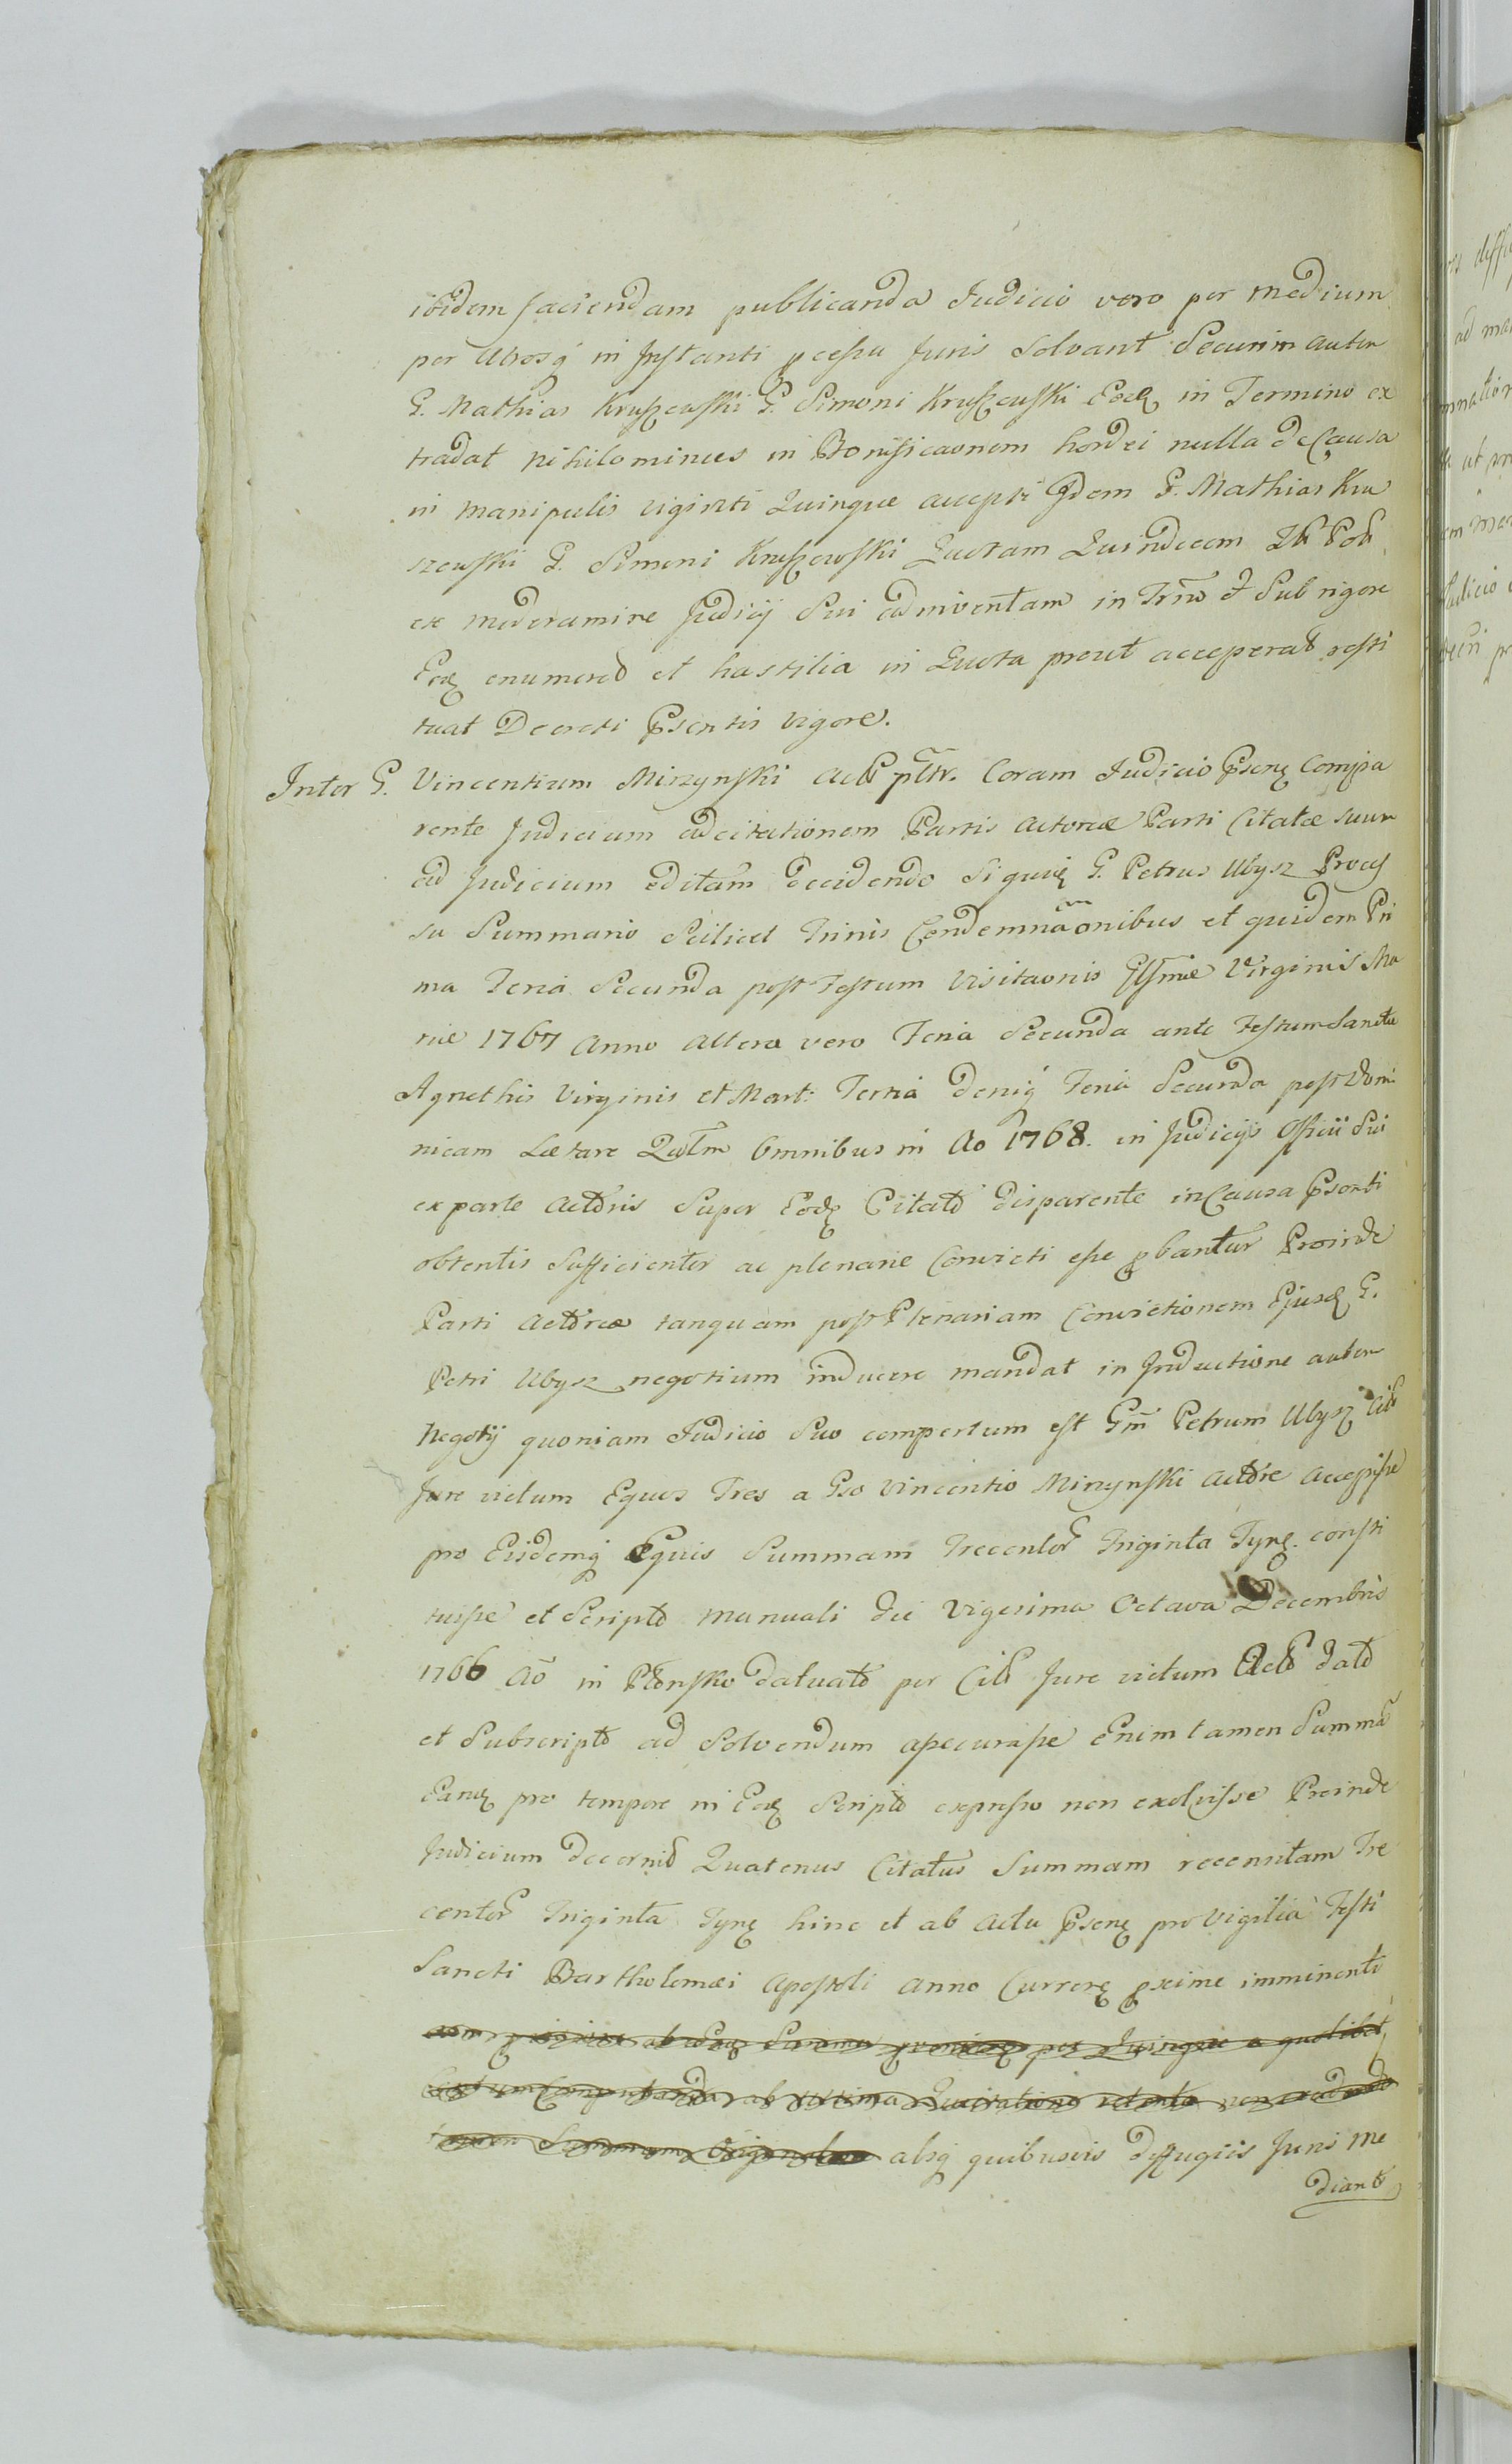 ibidem faciendam publicanda Judicio vero per medium
per Utrosq in Instanti pcessu Juris Solvant Securim autem
G. Mathias Kruszewski G. Simoni Kruszewski Eod in Termino ex
tradat nihilominus in Bonificaonem hordei nulla de Causa
in manipulis viginti Quinque accepti Idem G. Mathias Kru
szewski G. Simoni Kruszewski Quotam Quindecem Th Pol
ex moderamine Judicij Sui adinventam in Trno & Sub rigore
Eod enumerato et hastilia in Quota prout acceperat resti
tuat Decreti Psentis vigore.
Inter G. Vincentium Mirzynski Act pltr. Coram Judicio Psen Compa
rente Judicium ad citationem Partis Actorea Parti Citatæ suum
ad Judicium editam decidendo Siquid G. Petrus Ubysz Proces
su Summario Scilicet Trinis Condemnaonibus et quidem Pri
ma Feria Secunda post Festum Visitaonis Glsmæ Virginis Ma
riæ 1767 Anno Altera vero Feria Secunda ante Festum Sanctæ
Agnethis Virginis et Mart: Tertia deniq Feria Secunda post Domi
nicam Lætare Qdlm Omnibus in Ao 1768. in Judicijs Officii Sui
ex parte Actoris Super Eod Citato disparente in Causa Psenti
obtentis Sufficienter ac plenarie Convicti esse pbantur Proinde
Parti Actorea tanquam post Plenariam Convictionem Ejusd G.
Petri Ubysz negotium inducere mandat in Inductione autem
Negotij quoniam Judicio Suo compertum est Gm Petrum Ubysz Cit
Jure victum Equos Tres a Gso Vincentio Mirzynski Actore accepisse
pro Eisdemq Equis Summam Trecentor Triginta Tynf. consti
tuisse et Scripto manuali die Vigesima Octava Decembris
1766 Ao in Plonsko datuato per Cit Jure victum Acto dato
et Subscripto ad Solvendum assecurasse Enim tamen Summa
Eand pro tempore in Eod Scripto expresso non exolvisse Proinde
Judicium decernit Quatenus Citatus Summam recensitam Tre
centor Triginta Tynf hinc et ab Actu Psen pro Vigilia Festi
Sancti Bartholomæi Apostoli Anno Curren pxime imminenti
ab Eod Summa per Quinque a quolibet
ab
Summam absq quibusvis diffugiis Juris me
diant